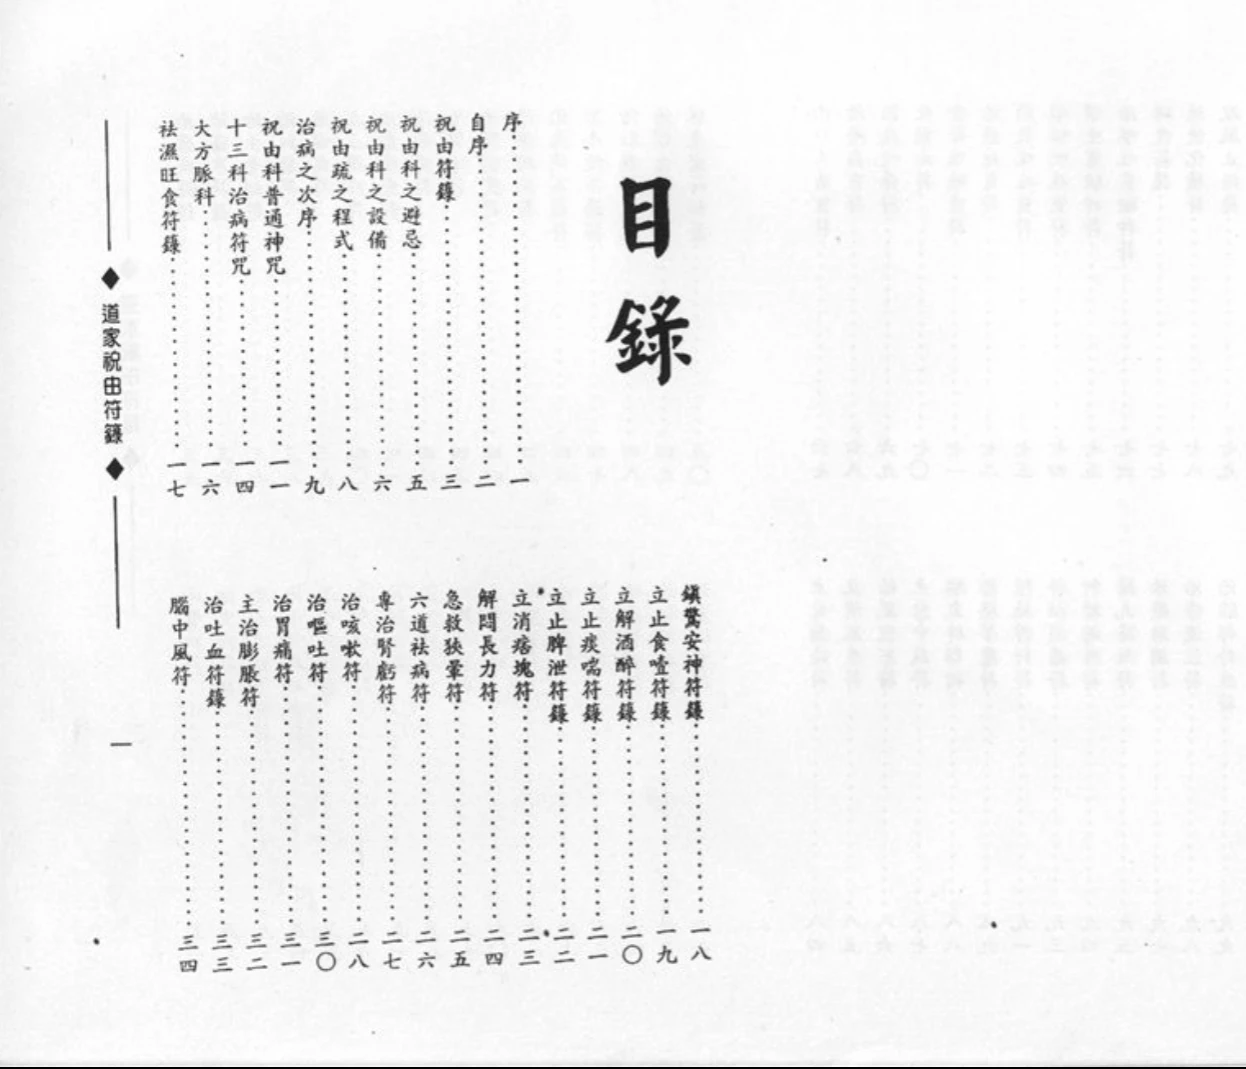 目錄
序……一
自序……二
祝由符籙……三
祝由科之避忌……五
祝由科之設備……六
祝由疏之程式……八
治病之次序……九
祝由科普通神咒……一一
十三科治病符咒……一四
大方脈科……一六
祛濕旺食符籙……一七
鎭驚安神符籙……一八
立止食噎符籙……一九
立解酒醉符籙……二〇
立止痰喘符籙……二一
立止脾泄符籙……二二
立消痞塊符……二三
解悶長力符……二四
急救狹暈符……二五
六道祛病符……二六
專治腎虧符……二七
治咳嗽符……二八
治嘔吐符……三〇
治胃痛符……三一
主治膨脹符……三二
治吐血符籙……三三
腦中風符……三四
◆道家祝由符籙◆
一